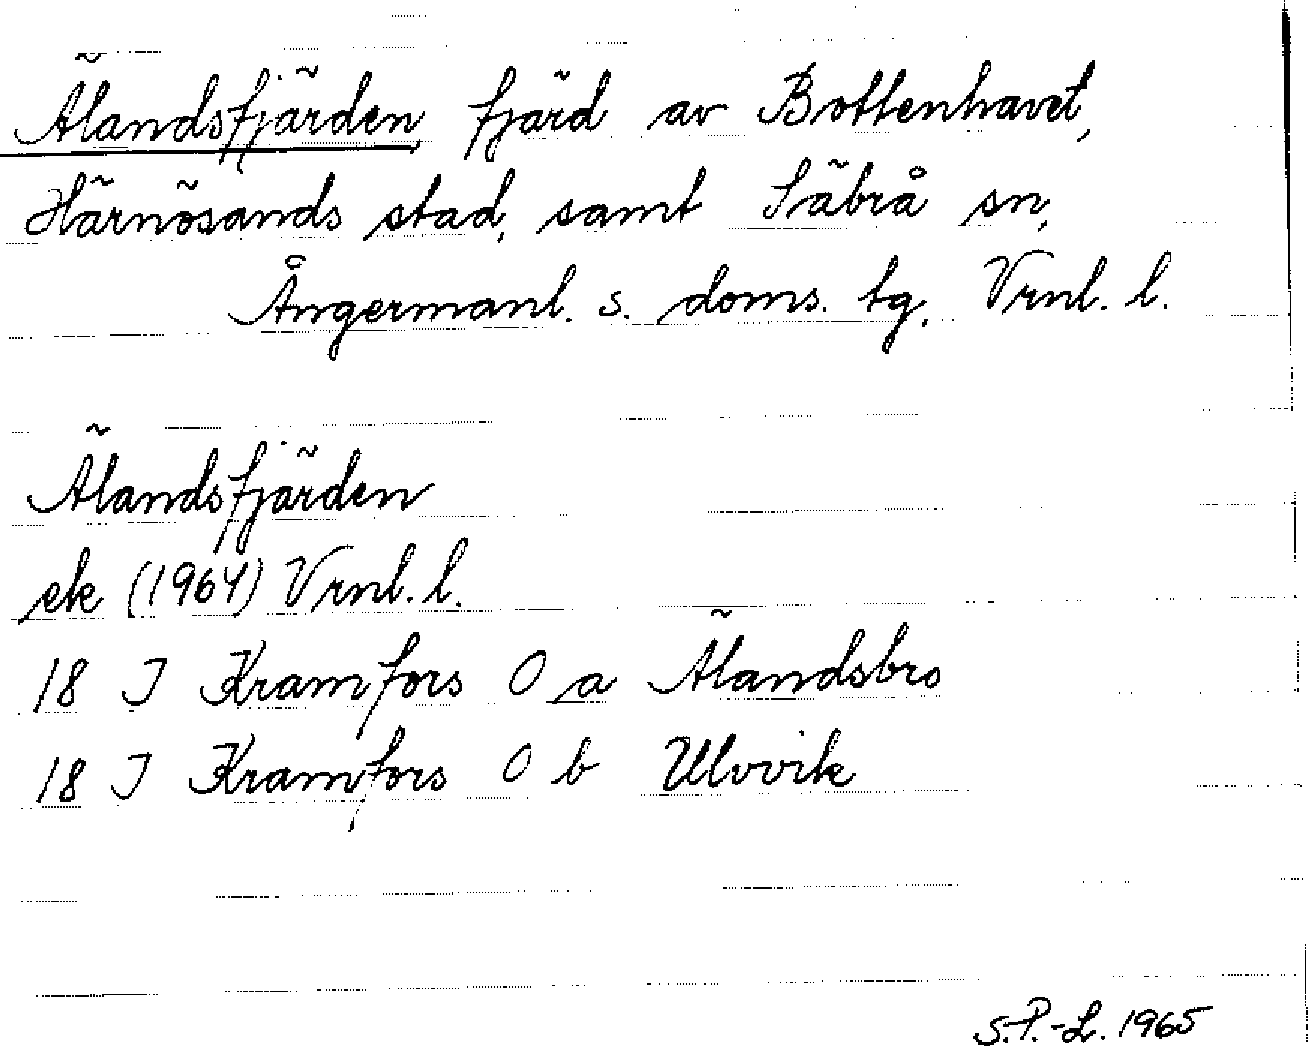 Älandsfjärden fjärd av Bottenhavet,
Härnösands stad, samt Säbrå sn,
Ångermanl. s. doms. tg, Vrnl. l.
Älandsfjärden
ek (1964) Vrnl. l.
18 I Kramfors O a Älandsbro
18 I Kramfors O b Ulvvik
S.P.-L. 1965